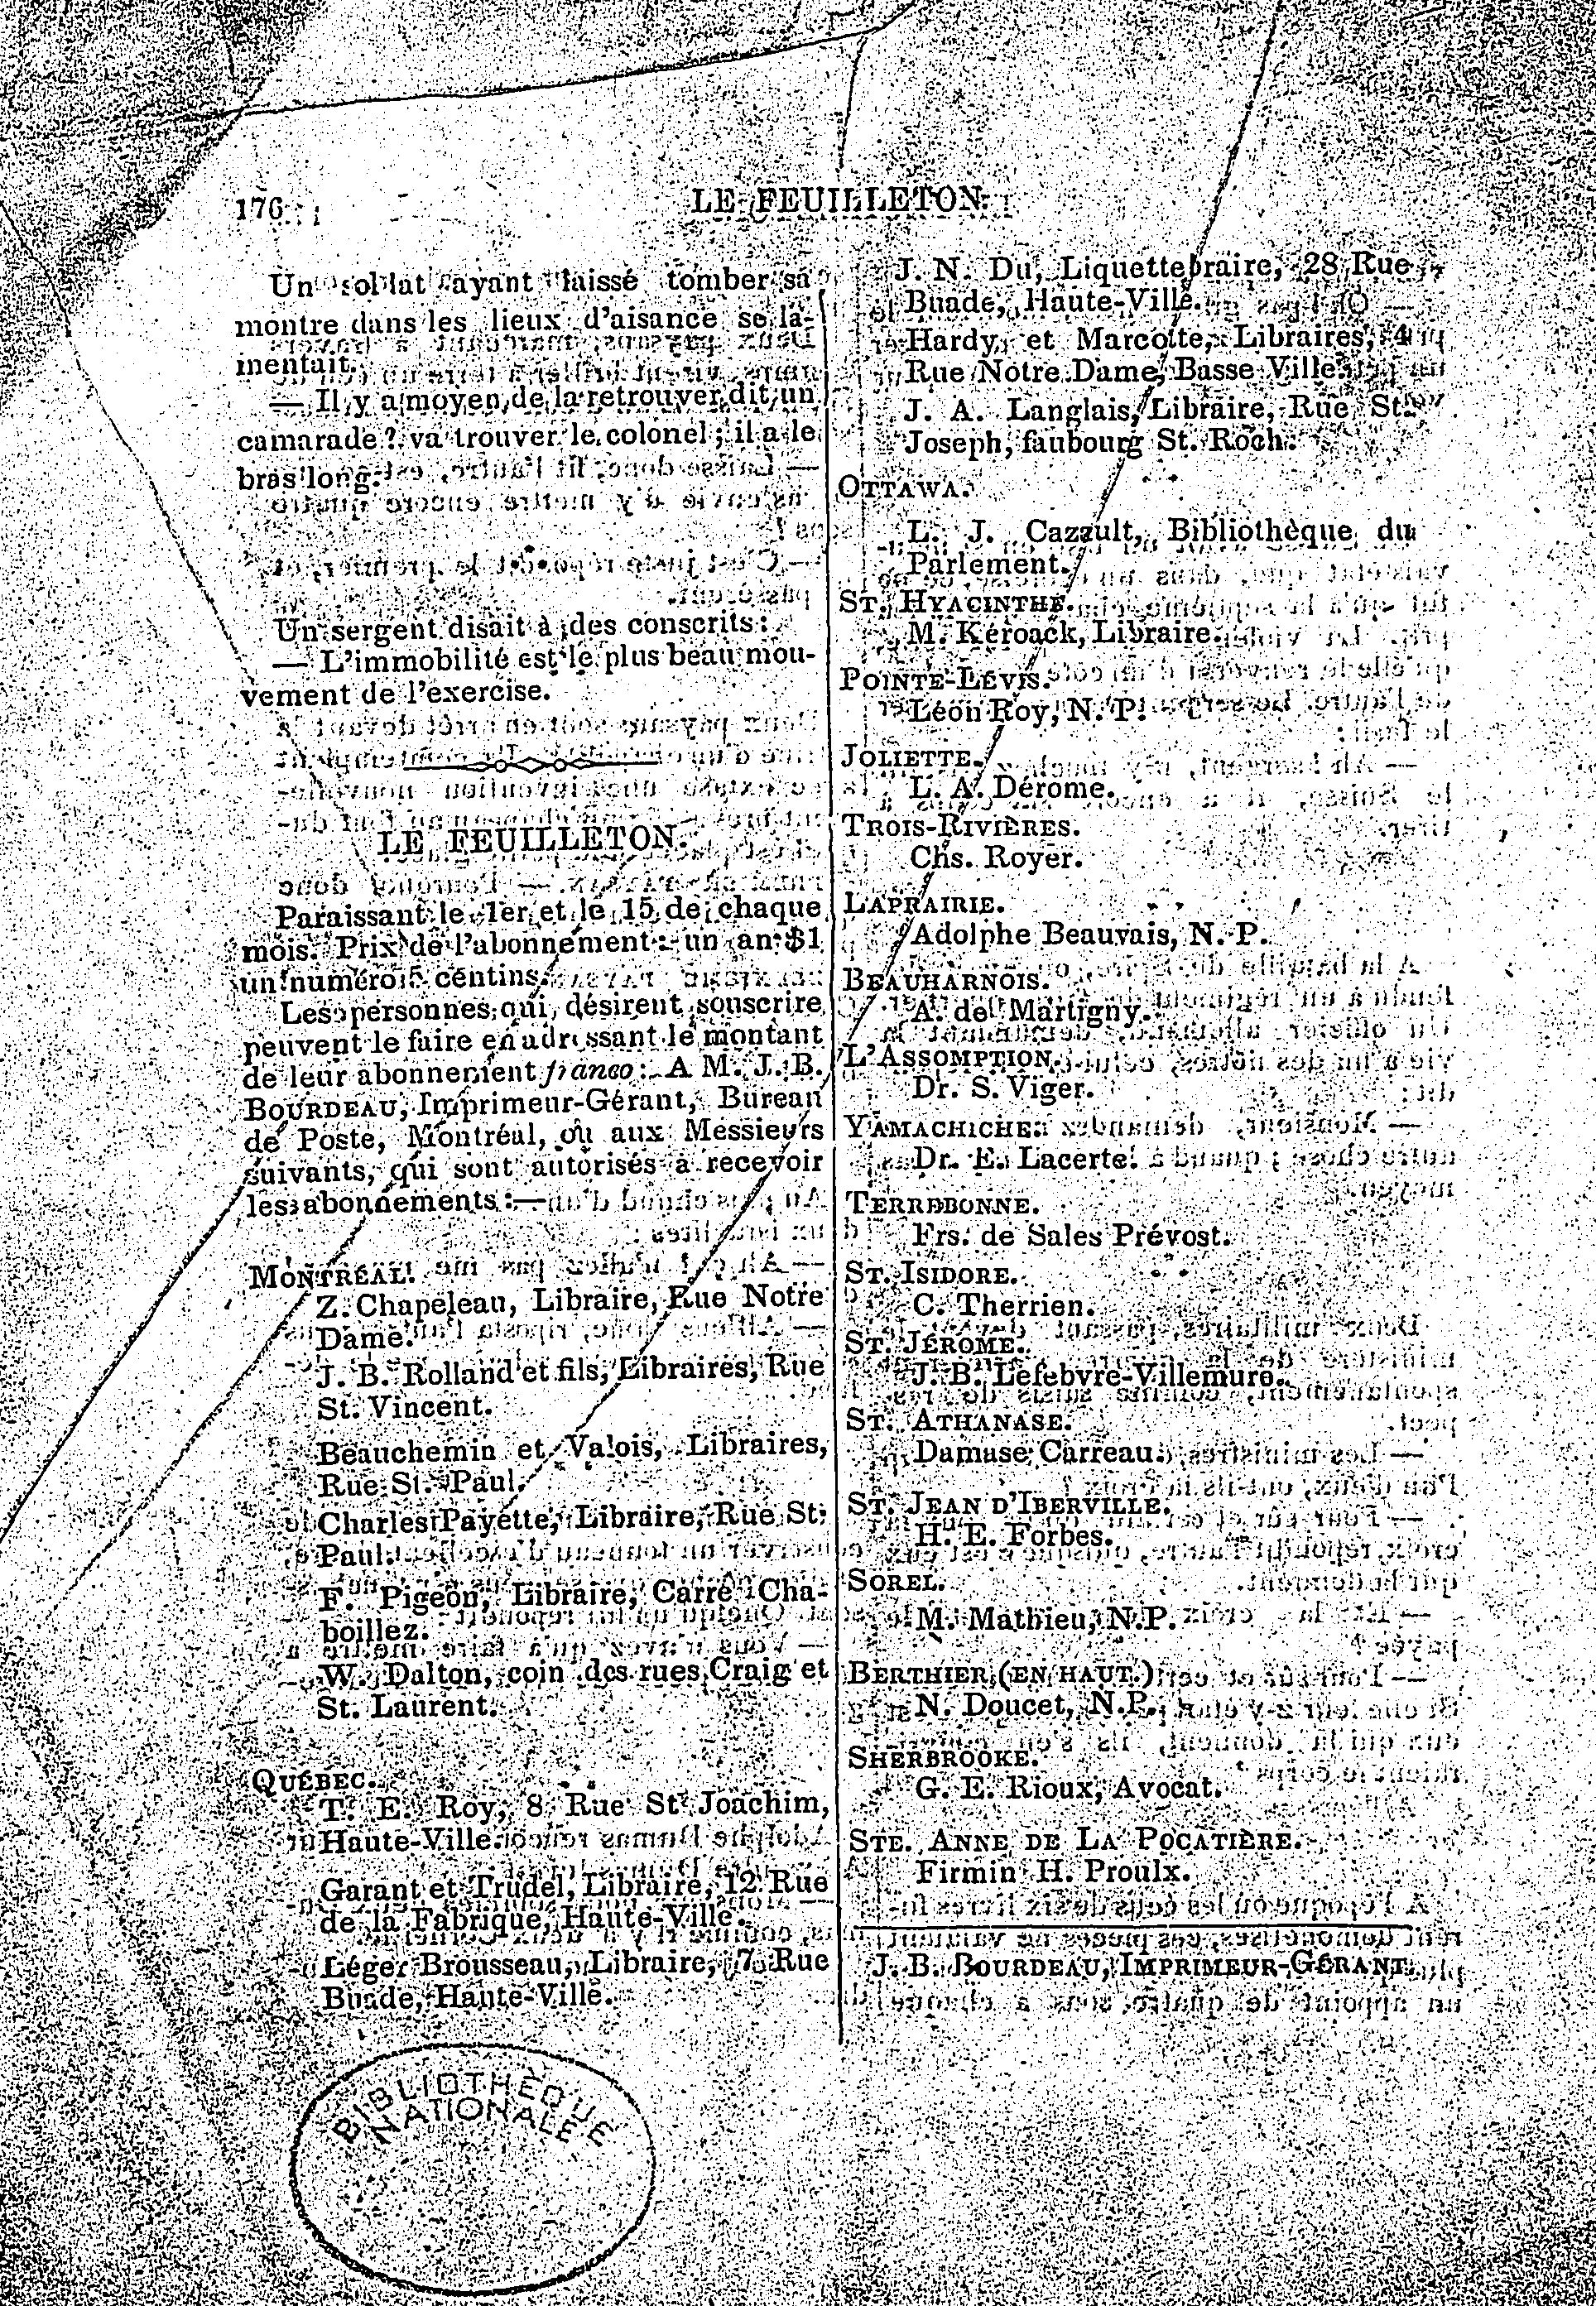 176
LE FEUILLETON.
Un soldat ayant laissé tomber sa
montre dans les lieux d'aisance se la-
mentait.
— Il y a moyen de la retrouver dit un
camarade ? va trouver le colonel ; il a le
bras long.
Un sergent disait à des conscrits :
— L'immobilité est le plus beau mou-
vement de l'exercise.
LE FEUILLETON.
Paraissant le 1er et le 15 de chaque
mois. Prix de l'abonnement : un an $1
un numéro 5 centins.
Les personnes qui désirent souscrire
peuvent le faire en adressant le montant
de leur abonnement franco : A M. J. B.
BOURDEAU, Imprimeur-Gérant, Bureau
de Poste, Montréal, ou aux Messieurs
suivants, qui sont autorisés à recevoir
les abonnements :—
MONTRÉAL.
Z. Chapeleau, Libraire, Rue Notre
Dame.
J. B. Rolland et fils, Libraires, Rue
St. Vincent.
Beauchemin et Valois, Libraires,
Rue St. Paul.
Charles Payette, Libraire, Rue St.
Paul.
F. Pigeon, Libraire, Carré Cha-
boillez.
W. Dalton, coin des rues Craig et
St. Laurent.
QUÉBEC.
T. E. Roy, 8 Rue St Joachim,
Haute-Ville.
Garant et Trudel, Libraire, 12 Rue
de la Fabrique, Haute-Ville.
Léger Brousseau, Libraire, 7 Rue
Buade, Haute-Ville.
J. N. Du, Liquettebraire, 28 Rue
Buade, Haute-Ville.
Hardy et Marcotte, Libraires, 4
Rue Notre Dame, Basse Ville.
J. A. Langlais, Libraire, Rue St.
Joseph, faubourg St. Roch.
OTTAWA.
L. J. Cazault, Bibliothèque du
Parlement.
ST. HYACINTHE.
M. Kéroack, Libraire.
POINTE-LÉVIS.
Léon Roy, N. P.
JOLIETTE.
L. A. Dérome.
TROIS-RIVIÈRES.
Chs. Royer.
LAPRAIRIE.
Adolphe Beauvais, N. P.
BEAUHARNOIS.
A. de Martigny.
L'ASSOMPTION.
Dr. S. Viger.
YAMACHICHE.
Dr. E. Lacerte.
TERREBONNE.
Frs. de Sales Prévost.
ST. ISIDORE.
C. Therrien.
ST. JÉROME.
J. B. Lefebvre-Villemure.
ST. ATHANASE.
Damase Carreau.
ST. JEAN D'IBERVILLE.
H. E. Forbes.
SOREL.
M. Mathieu, N.P.
BERTHIER (EN HAUT.)
N. Doucet, N.P.
SHERBROOKE.
G. E. Rioux, Avocat.
STE. ANNE DE LA POCATIÈRE.
Firmin H. Proulx.
J. B. BOURDEAU, IMPRIMEUR-GÉRANT.
BIBLIOTHÈQUE
NATIONALE